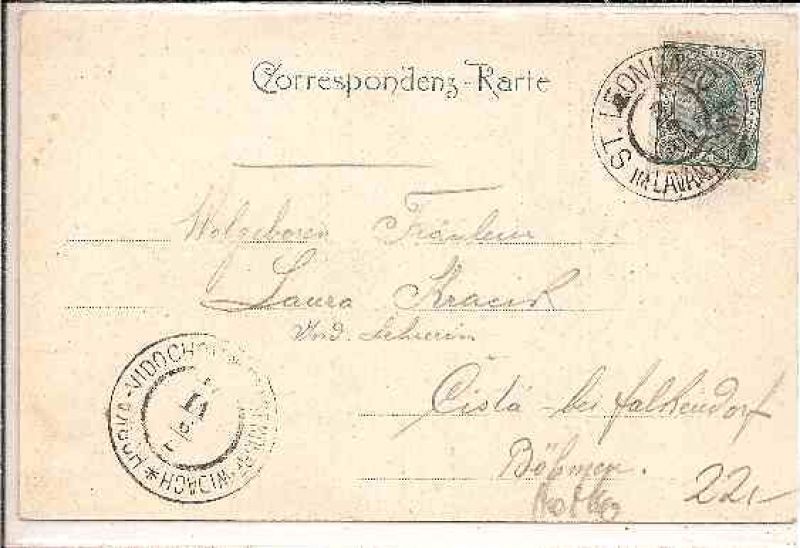 Correspondenz-Karte
ST. LEONHARD
IM LAVANT
Wolgeboren Fräulein
Laura Kracik
Ind. Lehrerin
Čistá - bei Falkendorf
Böhmen.
22,-
HORKA-VIDOCHOV
WIDACH